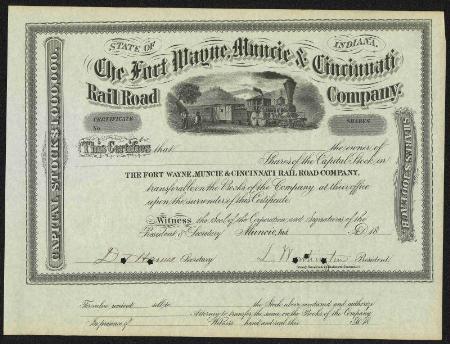 STATE OF INDIANA.
The Fort Wayne, Muncie & Cincinnati
Rail Road Company.
CERTIFICATE
No.
SHARES
CAPITAL STOCK $1,000,000
SHARES $100 EACH
This Certifies that the owner of
Shares of the Capital Stock in
THE FORT WAYNE, MUNCIE & CINCINNATI RAIL ROAD COMPANY,
transferable on the Books of the Company at their office
upon the surrender of this Certificate.
Witness the Seal of the Corporation and Signatures of the
President & Secretary Muncie, Ind. A.D. 18
Secretary President
For value received sell to the Stock above mentioned and authorize
Attorney to transfer the same on the Books of the Company
In presence of Witness hand and seal this A.D. 18